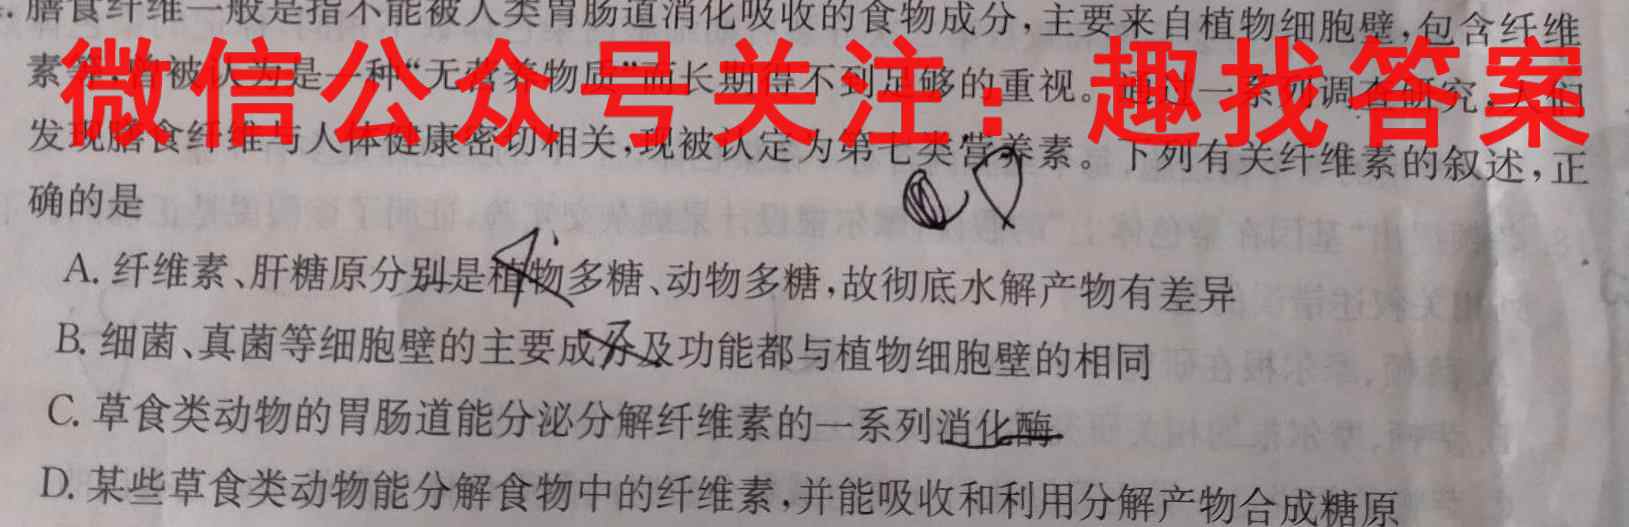 膳食纤维一般是指不能被人类胃肠道消化吸收的食物成分,主要来自植物细胞壁,包含纤维
素等,曾被认为是一种“无营养物质”而长期得不到足够的重视。通过一系列调查研究,人们
微信公众号关注：趣找答案
发现膳食纤维与人体健康密切相关,现被认定为第七类营养素。下列有关纤维素的叙述,正
确的是
A. 纤维素、肝糖原分别是植物多糖、动物多糖,故彻底水解产物有差异
B. 细菌、真菌等细胞壁的主要成分及功能都与植物细胞壁的相同
C. 草食类动物的胃肠道能分泌分解纤维素的一系列消化酶
D. 某些草食类动物能分解食物中的纤维素,并能吸收和利用分解产物合成糖原